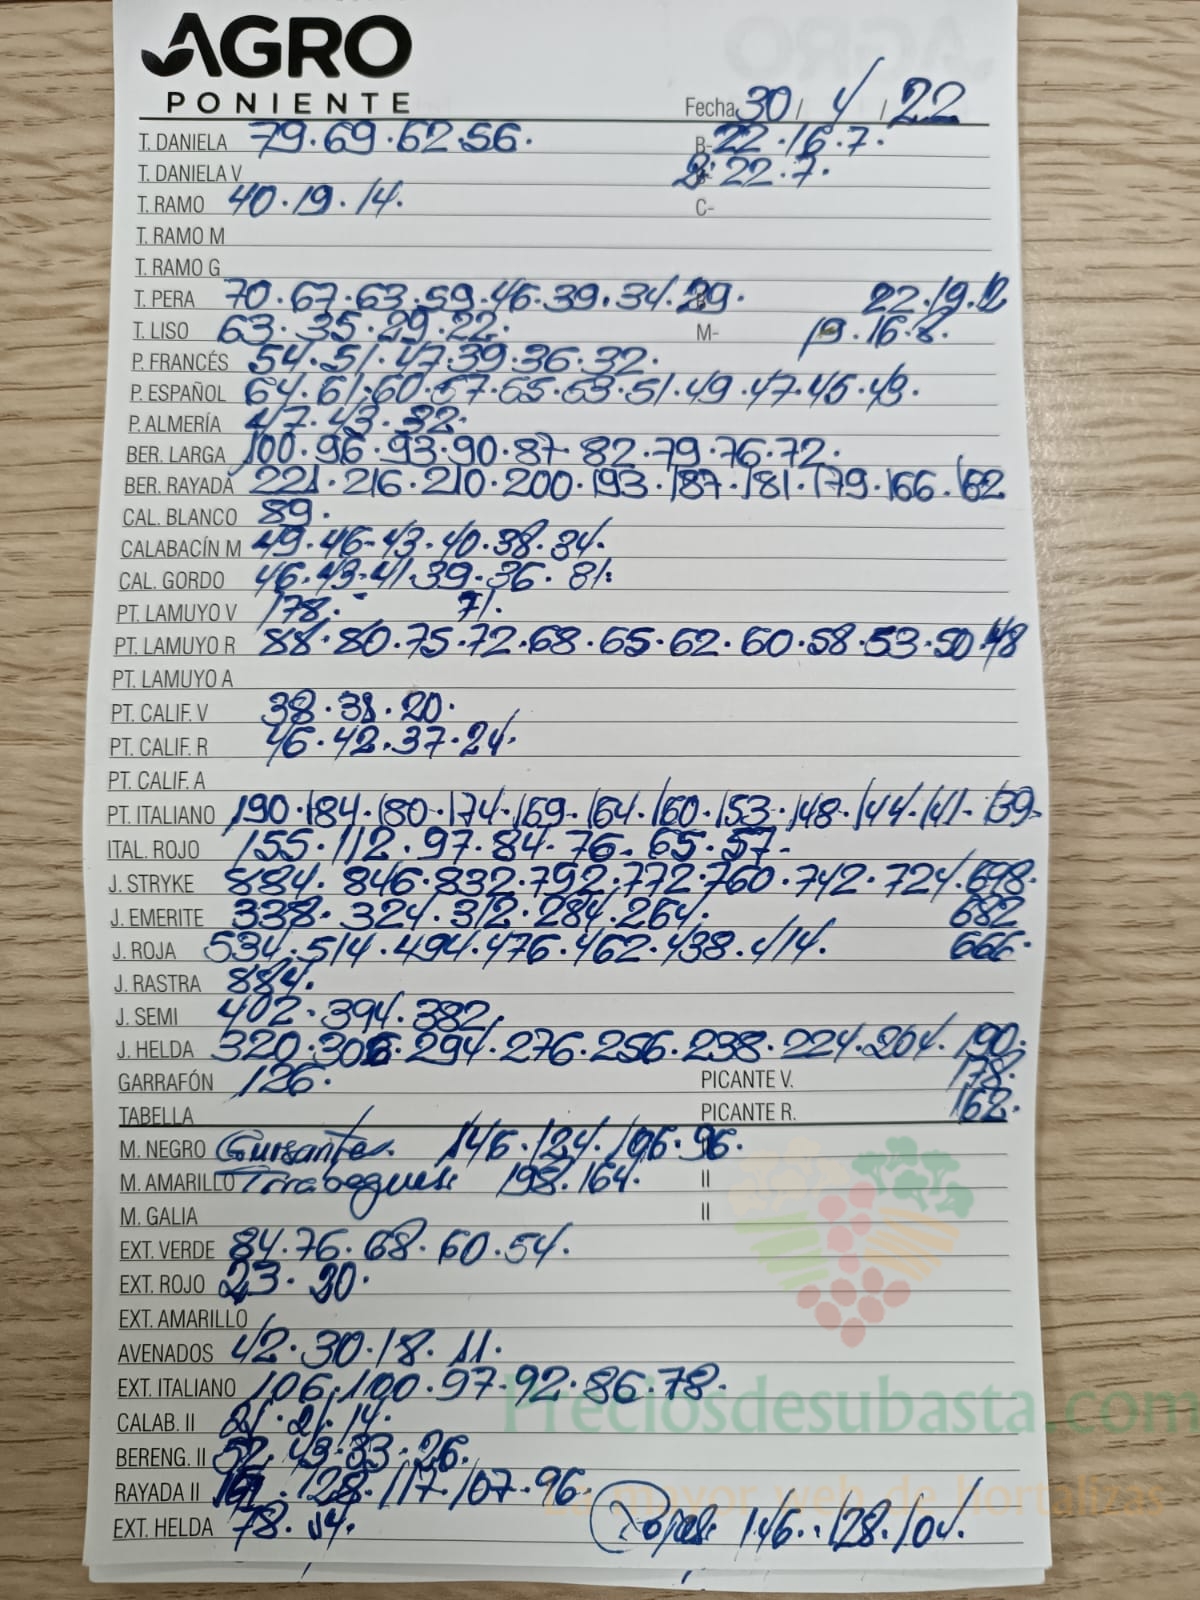 AGRO
PONIENTE
Fecha 30 / 4 / 22
T. DANIELA 79·69·62·56· B- 22·16·7·
T. DANIELA V 22·7·
T. RAMO 40·19·14· C-
T. RAMO M
T. RAMO G
T. PERA 70·67·63·59·46·39·34·29· 22·19·12
T. LISO 63·35·29·22· M- 19·16·8·
P. FRANCÉS 54·51·47·39·36·32·
P. ESPAÑOL 64·61·60·57·55·53·51·49·47·45·43·
P. ALMERÍA 47·43·32·
BER. LARGA 100·96·93·90·87·82·79·76·72·
BER. RAYADA 221·216·210·200·193·187·181·179·166·162
CAL. BLANCO 89·
CALABACÍN M 49·46·43·40·38·34·
CAL. GORDO 46·43·41·39·36·31·
PT. LAMUYO V 178· 71·
PT. LAMUYO R 88·80·75·72·68·65·62·60·58·53·50·48
PT. LAMUYO A
PT. CALIF. V 38·31·20·
PT. CALIF. R 46·42·37·24·
PT. CALIF. A
PT. ITALIANO 190·184·180·174·169·164·160·153·148·144·141·139·
ITAL. ROJO 155·112·97·84·76·65·57·
J. STRYKE 884·846·832·792·772·760·742·724·698·
J. EMERITE 338·324·312·284·264· 682
J. ROJA 534·514·494·476·462·438·414· 666·
J. RASTRA 884·
J. SEMI 402·394·382·
J. HELDA 320·306·294·276·256·238·224·204·190·
GARRAFÓN 126· PICANTE V. 178·
TABELLA PICANTE R. 162·
M. NEGRO Guisantes 146·124·106·96· II
M. AMARILLO Tirabeques 198·164· II
M. GALIA II
EXT. VERDE 84·76·68·60·54·
EXT. ROJO 23·20·
EXT. AMARILLO
AVENADOS 42·30·18·11·
EXT. ITALIANO 106·100·97·92·86·78·
Preciosdesubasta.com
CALAB. II 21·14·
BERENG. II 52·43·33·26·
RAYADA II 128·117·107·96·
la mayor web de hortalizas
EXT. HELDA 78·54· Rojas 146·128·104·